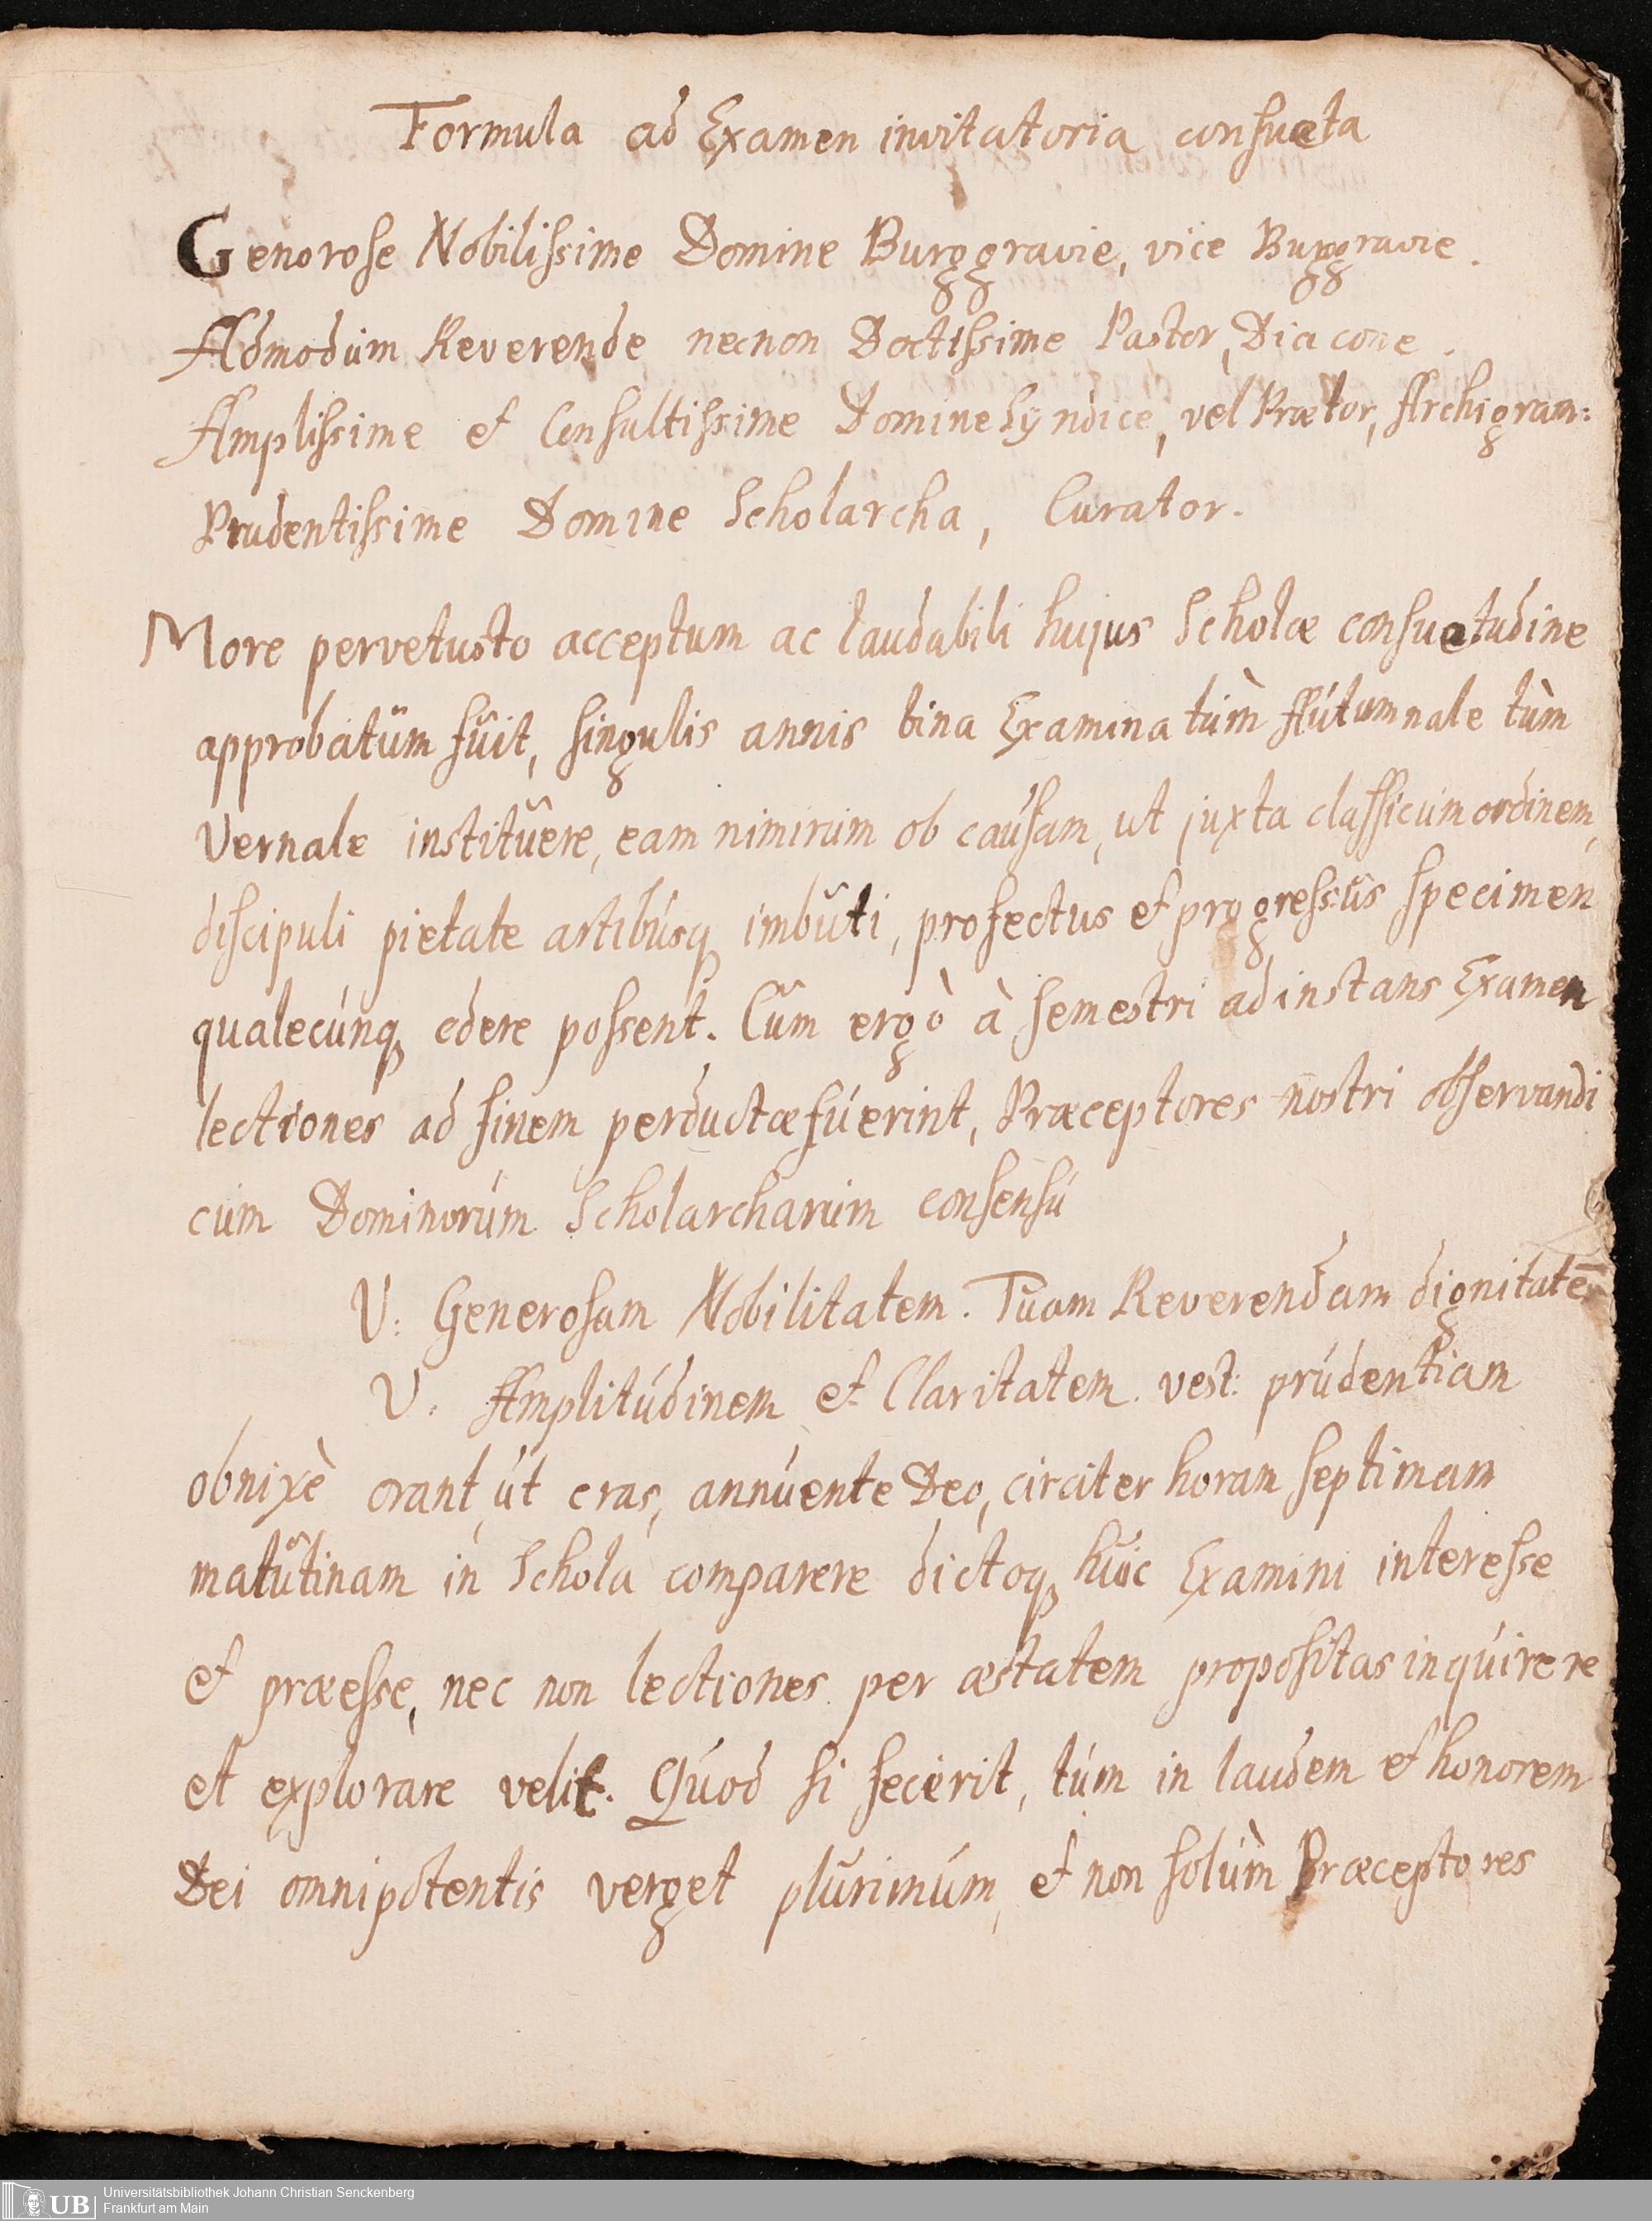 Formula ad Examen invitatoria consueta
Generose Nobilissime Domine Burggravie, vice Burggravie.
Admodum Reverende necnon Doctissime Pastor, Diacone.
Amplissime et Consultissime Domine Syndice, vel Prætor, Archigram:
Prudentissime Domine Scholarcha, Curator.
More pervetusto acceptum ac laudabili hujus Scholæ consuetudine
approbatum fuit, singulis annis bina Examina tùm Autumnale tùm
Vernale instituere, eam nimirum ob causam, ut juxta classicum ordinem,
discipuli pietate artibusq imbuti, profectus et progressus specimen
qualecunq edere possent. Cum ergò à semestri ad instans Examen
lectiones ad finem perductæ fuerint, Præceptores nostri observandi
cum Dominorum Scholarcharum consensu
V: Generosam Nobilitatem. Tuam Reverendam dignitatē
V. Amplitudinem et Claritatem. vest: prudentiam
obnixè orant, ut cras, annuente Deo, circiter horam septimam
matutinam in Schola comparere dictoq huic Examini interesse
et præesse, nec non lectiones per æstatem propositas inquirere
et explorare velit. Quod si fecerit, tum in laudem et honorem
Dei omnipotentis verget plurimum, et non solùm Præceptores
UB
Universitätsbibliothek Johann Christian Senckenberg
Frankfurt am Main